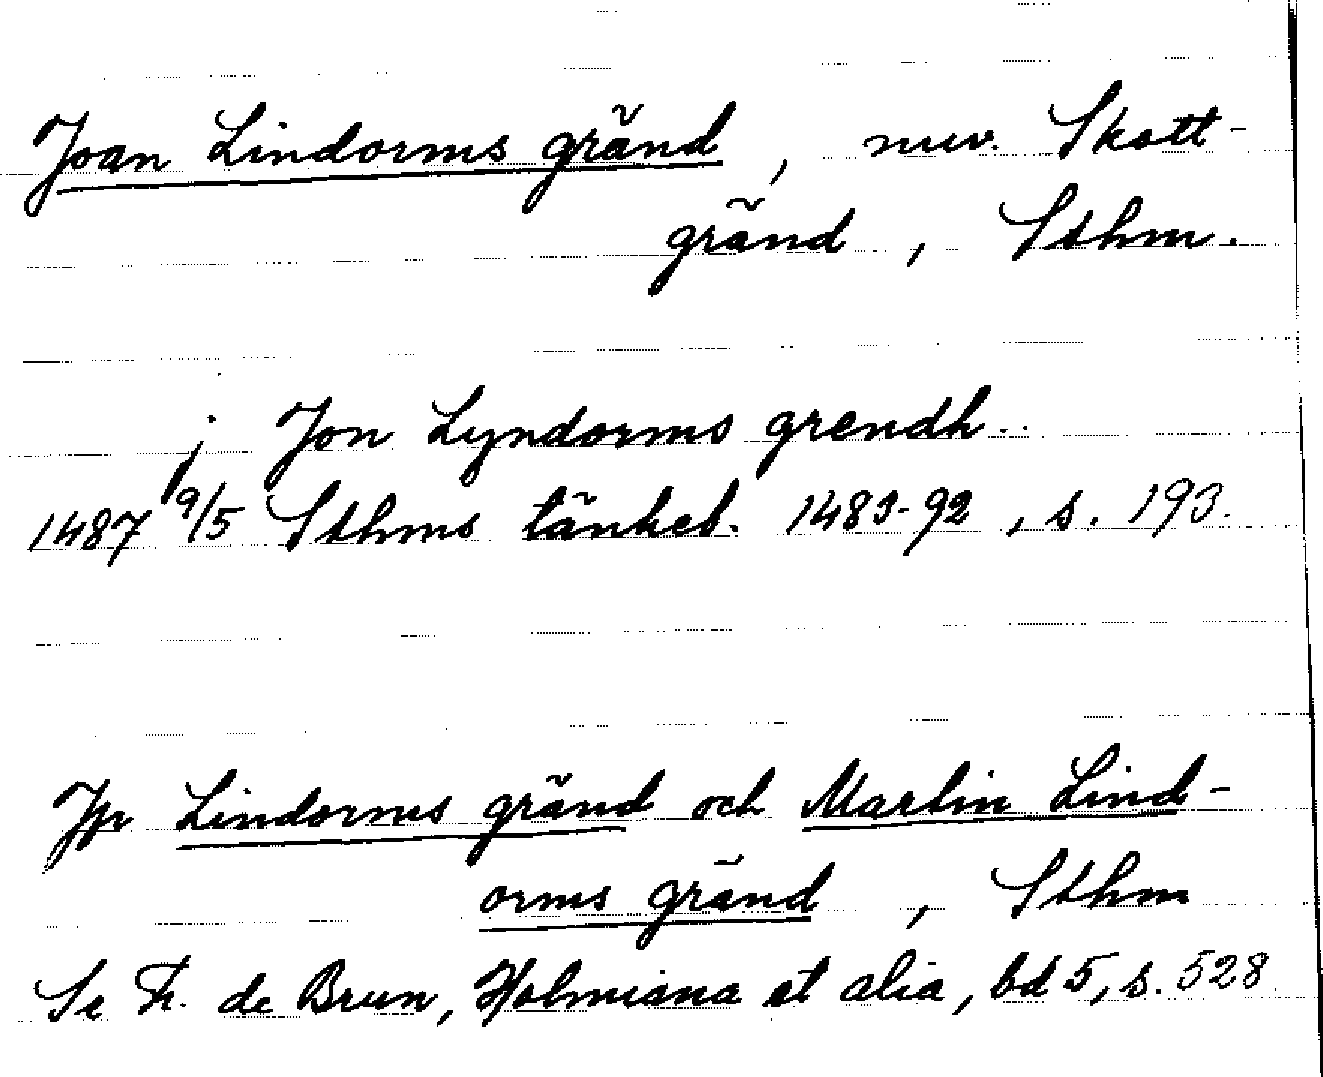 Joan Lindorms gränd, nuv. Skott-
gränd, Sthm.
j Jon Lyndorms grendh..
1487 9/5 Sthms tänkeb. 1483-92, s. 193.
Jfr Lindorms gränd och Martin Lind-
orms gränd, Sthm
Se Fr. de Brun, Holmiana et alia, bd 5, s. 528